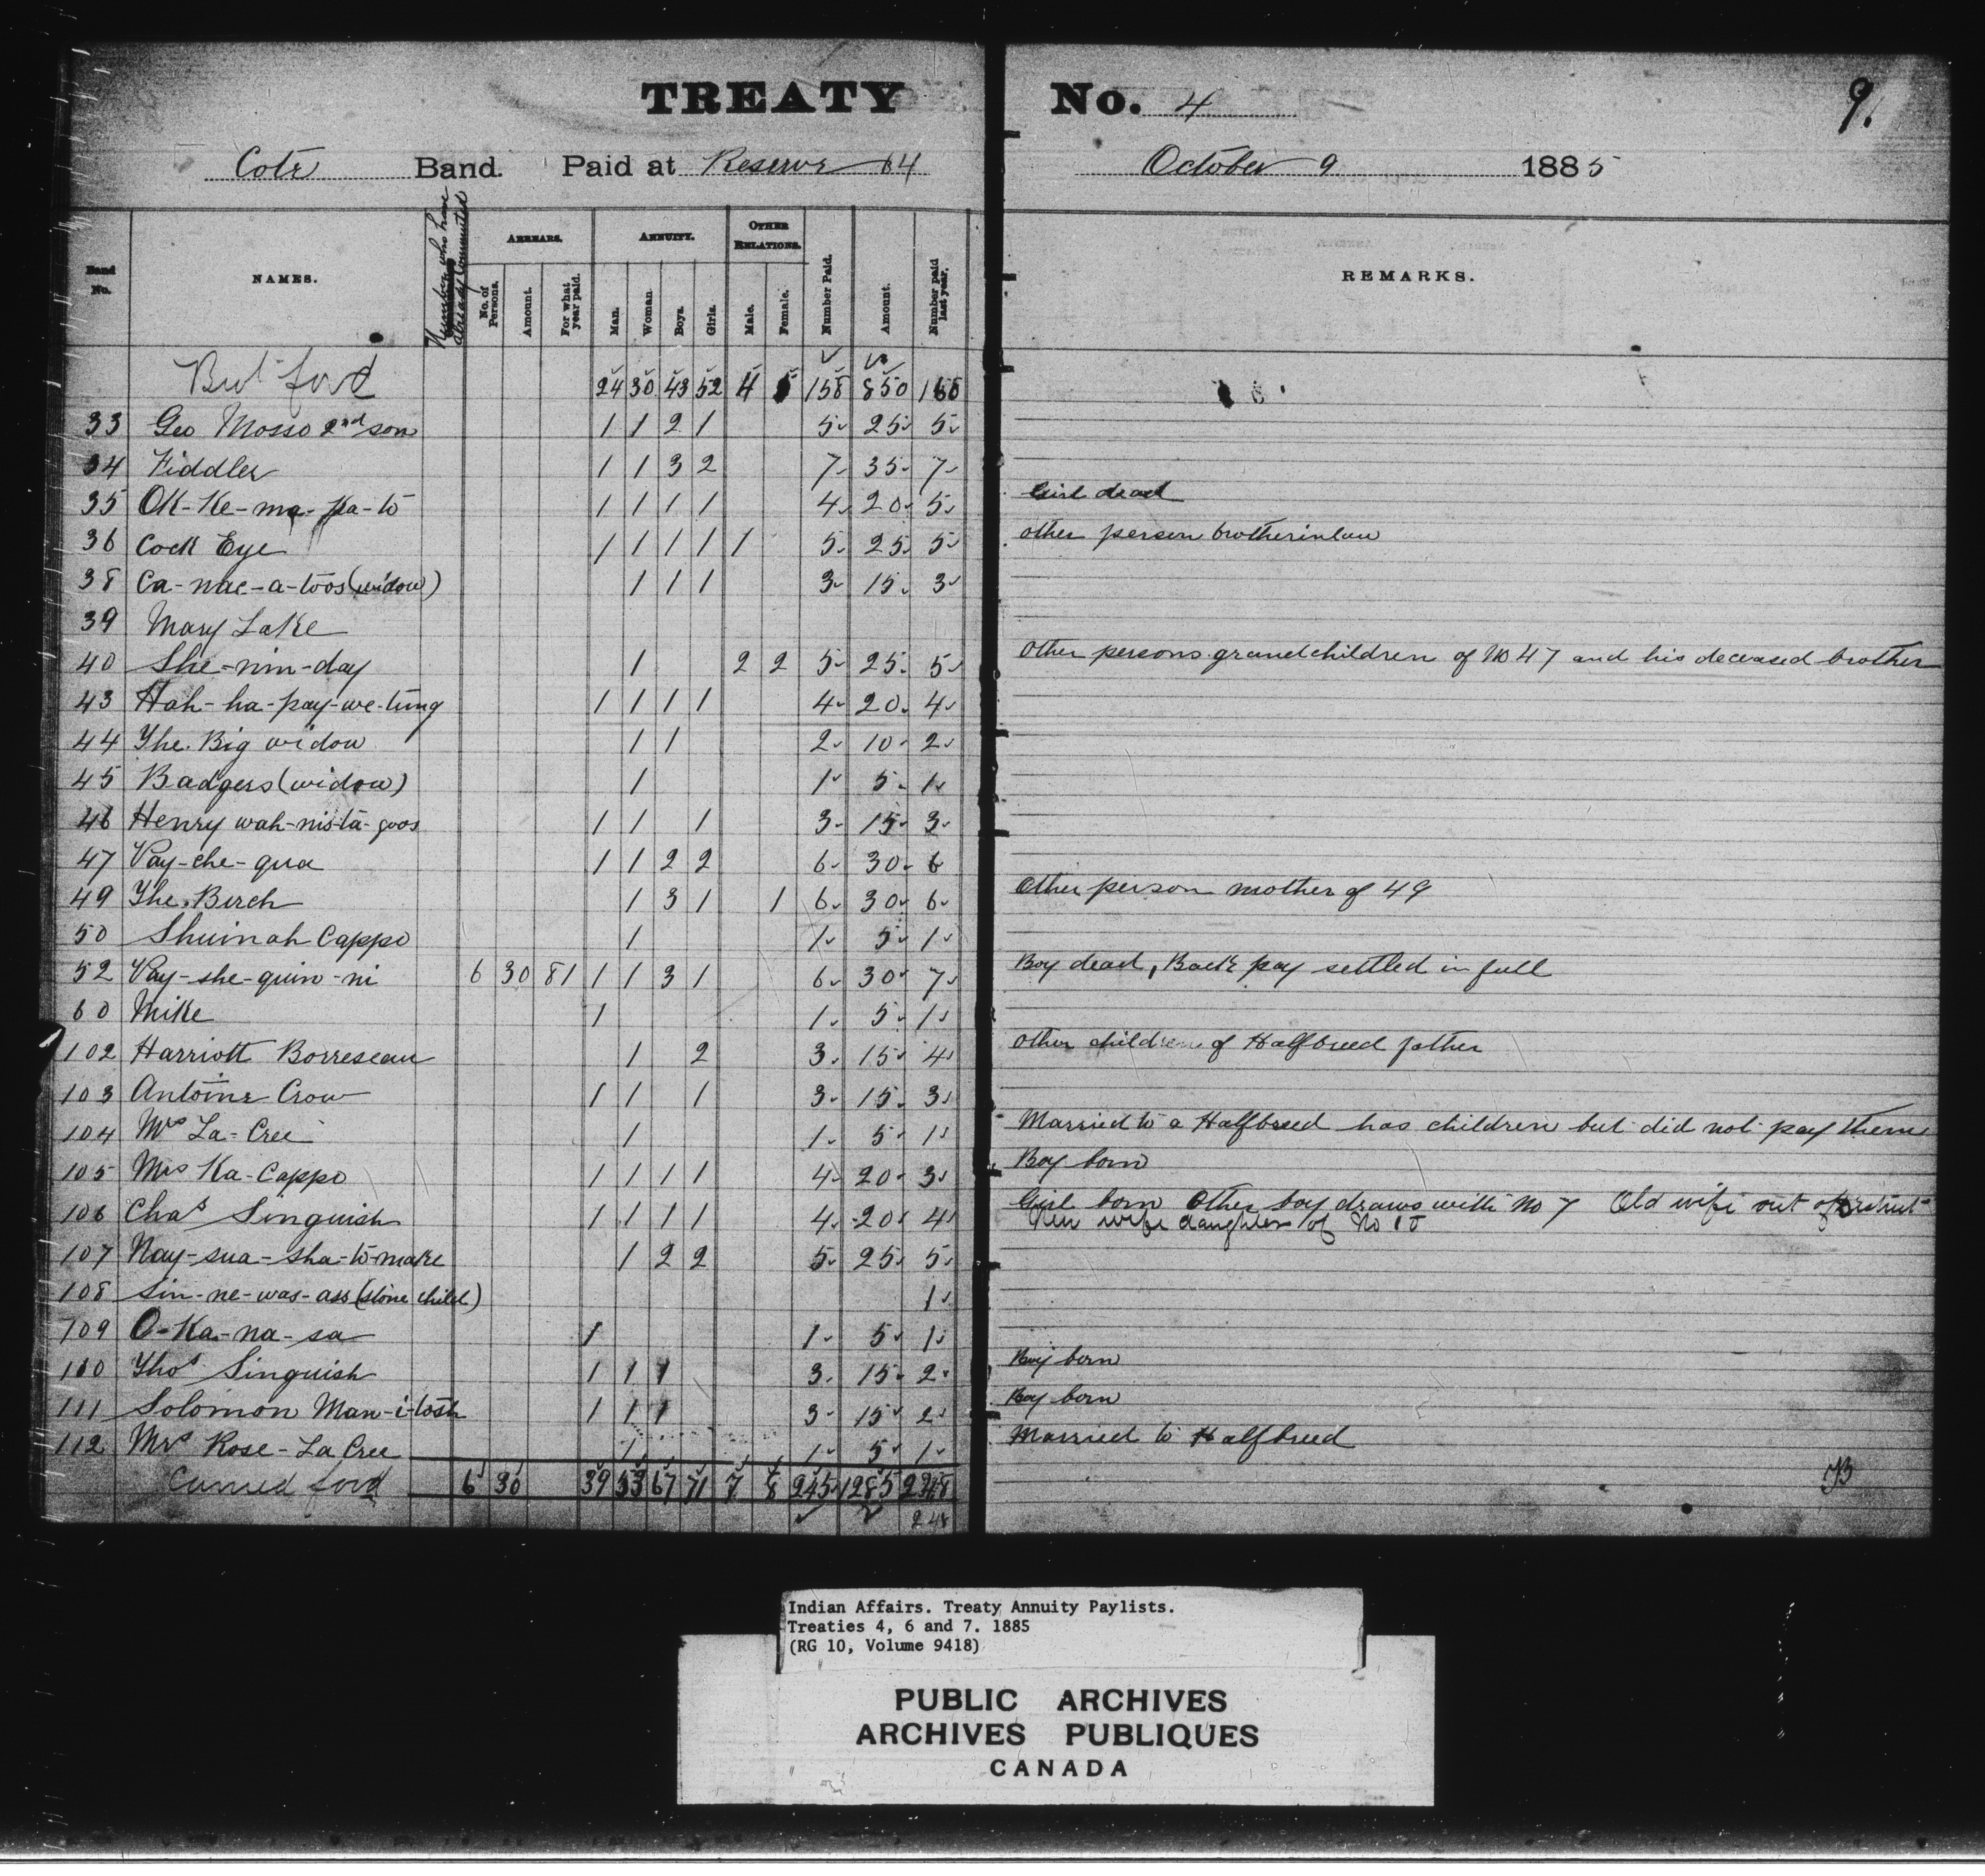 TREATY No. 4
9.
Cote Band. Paid at Reserve 64 October 9 1885
Band No. NAMES. Number who have already Commuted ARREARS. No. of Persons. Amount. For what year paid. ANNUITY. Man. Woman. Boys. Girls. OTHER RELATIONS. Male. Female. Number Paid. Amount. Number paid last year. REMARKS.
Brot ford 24 30 43 52 4 5 158 850
33 Geo Mosso 2nd son 1 1 2 1 5 25 5
34 Fiddler 1 1 3 2 7 35 7
35 OK-Ke-ma-Ka-to 1 1 1 1 4 20 5 Girl dead
36 Cock Eye 1 1 1 1 1 5 25 5 other person brotherinlaw
38 Ca-nac-a-toos (widow) 1 1 1 3 15 3
39 Mary Lake
40 She-nin-day 1 2 2 5 25 5 Other persons grandchildren of No 47 and his deceased brother
43 Hah-ha-pay-we-tung 1 1 1 1 4 20 4
44 The Big widow 1 1 2 10 2
45 Badgers (widow) 1 1 5 1
46 Henry wah-nis-ta-goos 1 1 1 3 15 3
47 Pay-che-qua 1 1 2 2 6 30 6
49 The Birch 1 3 1 1 6 30 6 Other person mother of 49
50 Shuinah Cappo 1 1 5 1
52 Pay-she-quin-ni 6 30 81 1 1 3 1 6 30 7 Boy dead, Back pay settled in full
60 Mike 1 1 5 1
102 Harriott Borreseau 1 2 3 15 4 other children of Halfbreed father
103 Antoine Crow 1 1 1 3 15 3
104 Mrs La-Cree 1 1 5 1 Married to a Halfbreed has children but did not pay them
105 Mrs Ka-Cappo 1 1 1 1 4 20 3 Boy born
106 Chas Singuish 1 1 1 1 4 20 4 Girl born Other boy draws with No 7 Old wife out of District
New wife daughter of No
107 Nay-sua-sha-to-make 1 2 2 5 25 5
108 Sin-ne-was-ass (stone child) 1
109 O-Ka-na-sa 1 1 5 1
110 Thos Singuish 1 1 1 3 15 2 Boy born
111 Solomon Man-i-tosh 1 1 1 3 15 2 Boy born
112 Mrs Rose-La Cree 1 1 5 1 Married to Halfbreed
Carried ford 6 30 39 53 67 71 7 8 245 1285 248
248
Indian Affairs. Treaty Annuity Paylists.
Treaties 4, 6 and 7. 1885
(RG 10, Volume 9418)
PUBLIC ARCHIVES
ARCHIVES PUBLIQUES
CANADA